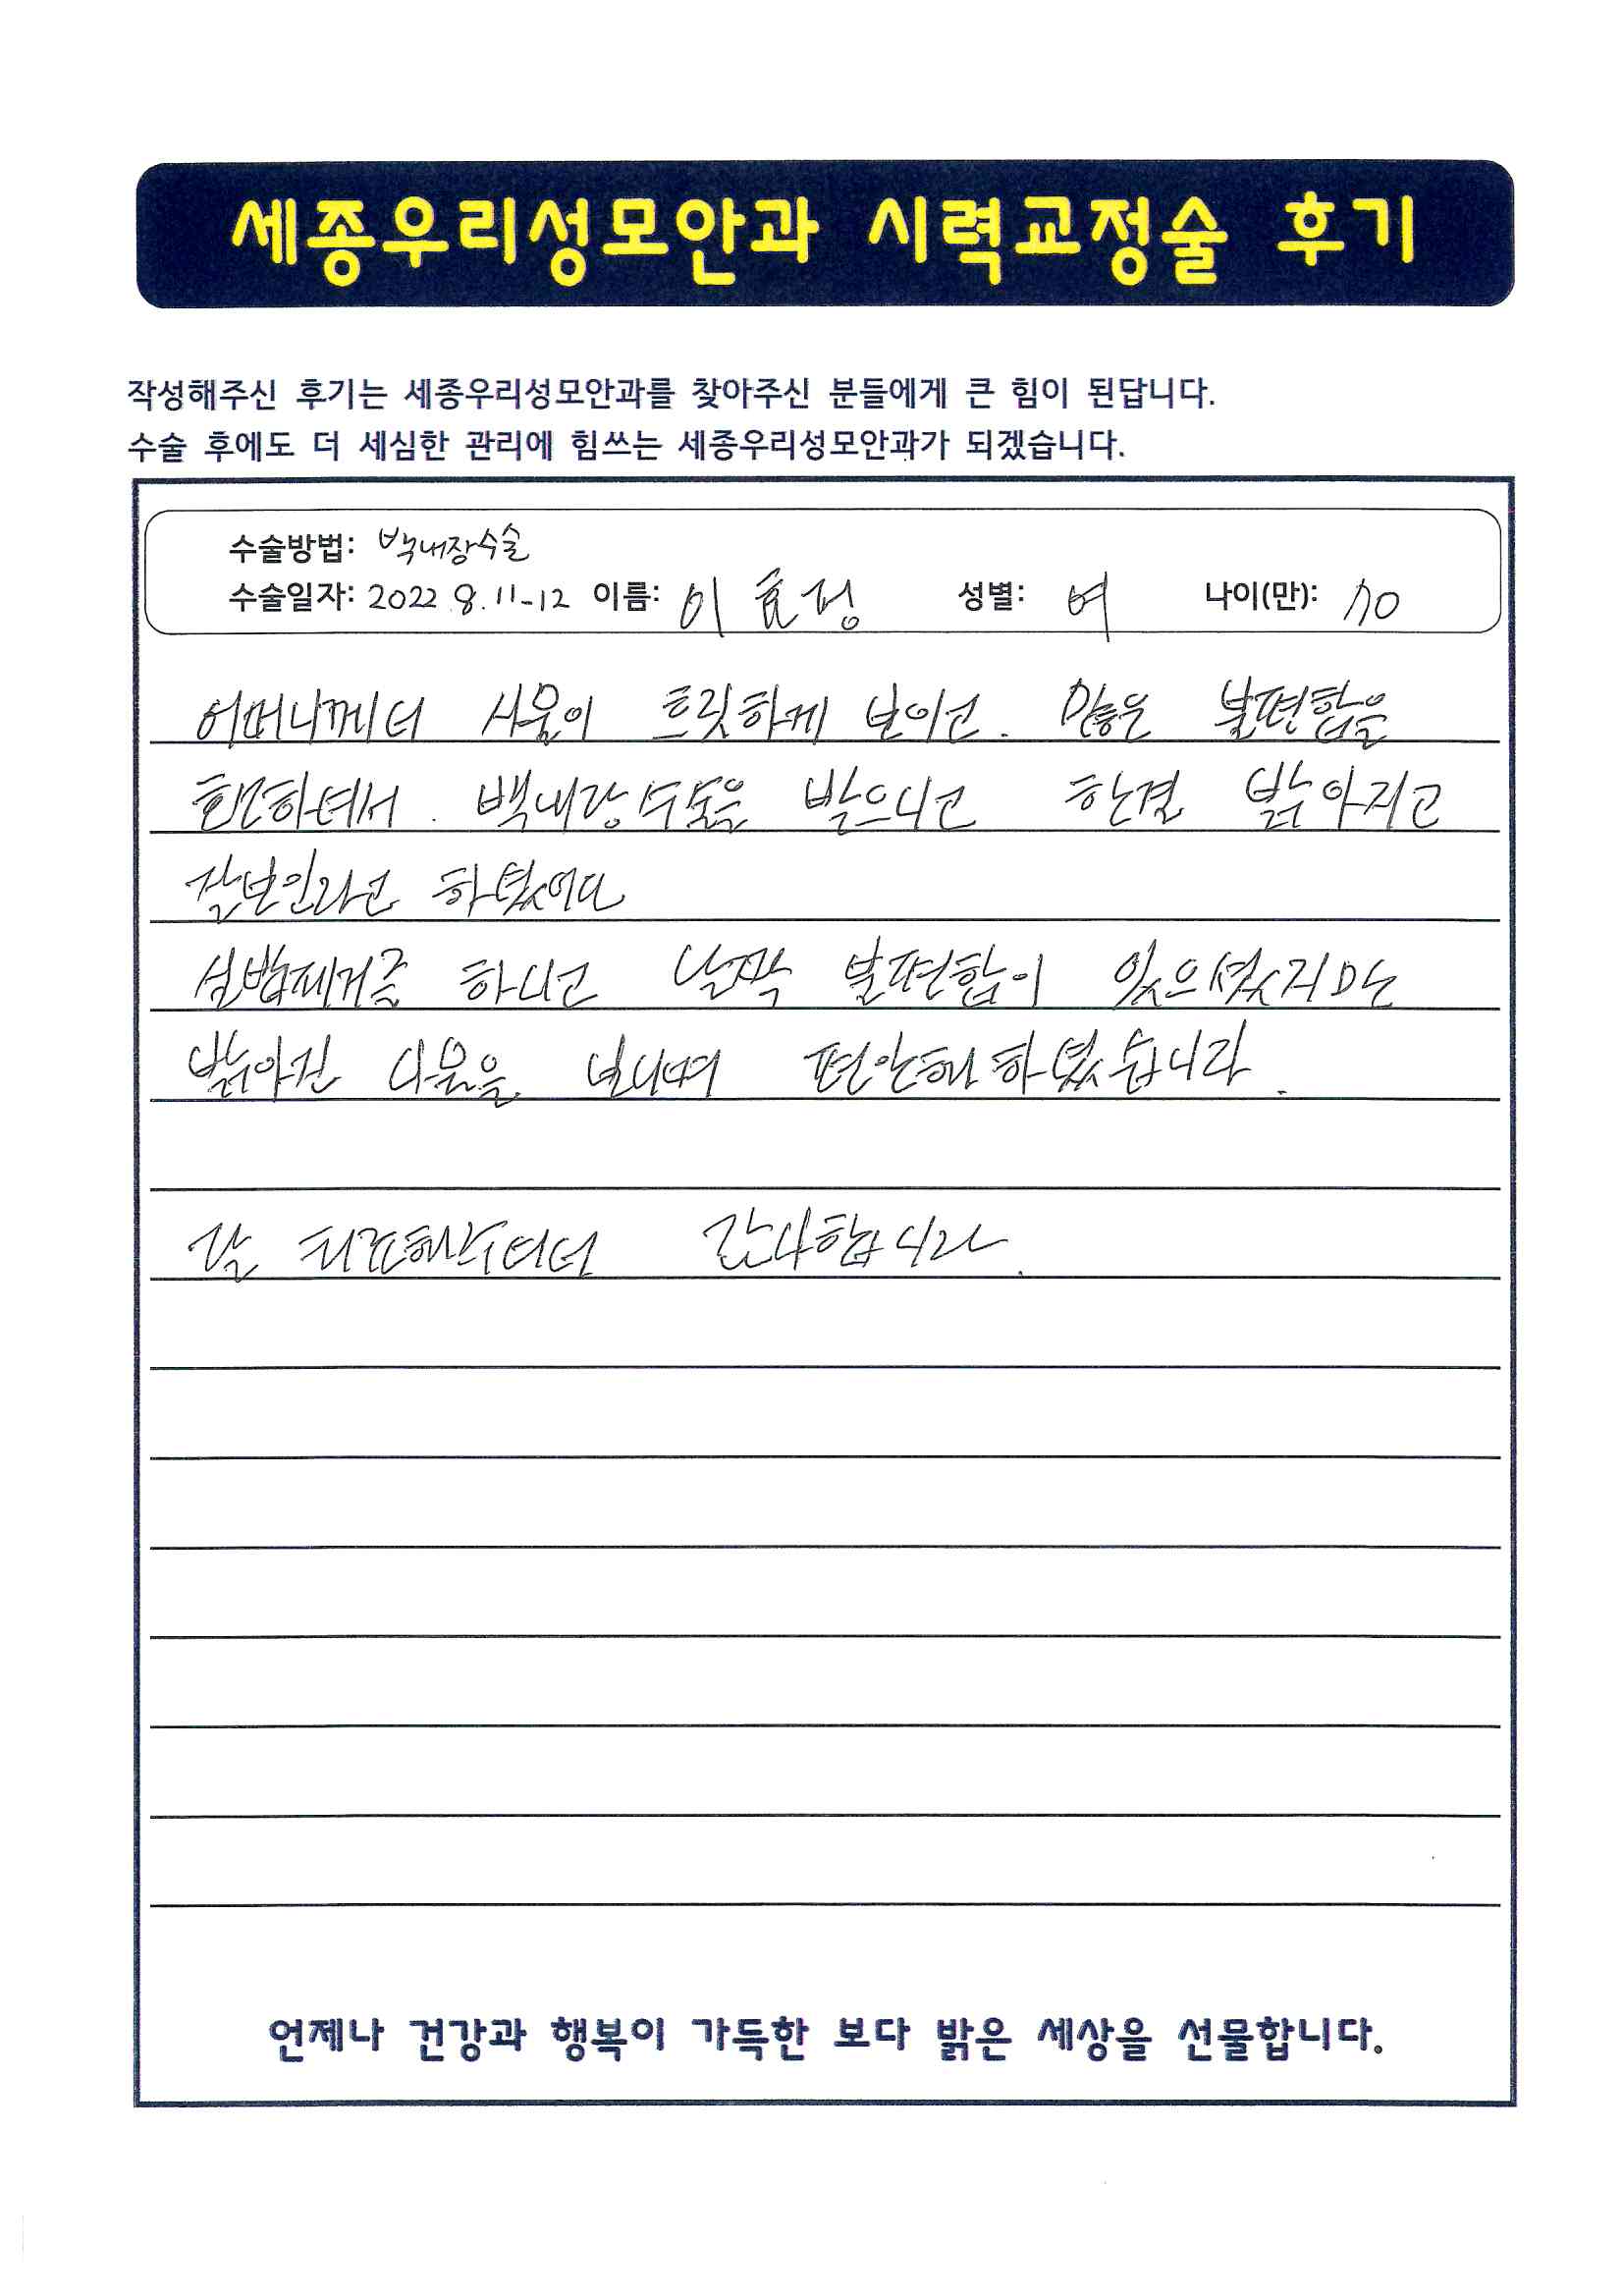 세종우리성모안과 시력교정술 후기
작성해주신 후기는 세종우리성모안과를 찾아주신 분들에게 큰 힘이 된답니다.
수술 후에도 더 세심한 관리에 힘쓰는 세종우리성모안과가 되겠습니다.
수술방법: 백내장수술
수술일자: 2022.8.11-12 이름: 이효정 성별: 여 나이(만): 70
어머니께서 사물이 흐릿하게 보이고. 많은 불편함을
호소하셔서. 백내장수술을 받으시고 한결 밝아지고
잘보인다고 하셨어요
하시고 살짝 불편함이 있으셨지만
밝아진 사물을 보시며 편안해 하셨습니다.
잘 치료해주셔서 감사합니다.
언제나 건강과 행복이 가득한 보다 밝은 세상을 선물합니다.